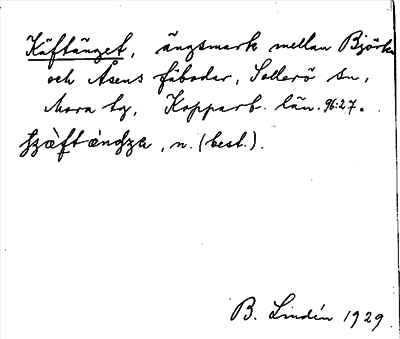 Käftänget, ängsmark mellan Björka
och Åsens fäbodar, Sollerö sn,
Mora tg, Kopparb. län. 96:27.
n. (best.).
B. Lindén 1929